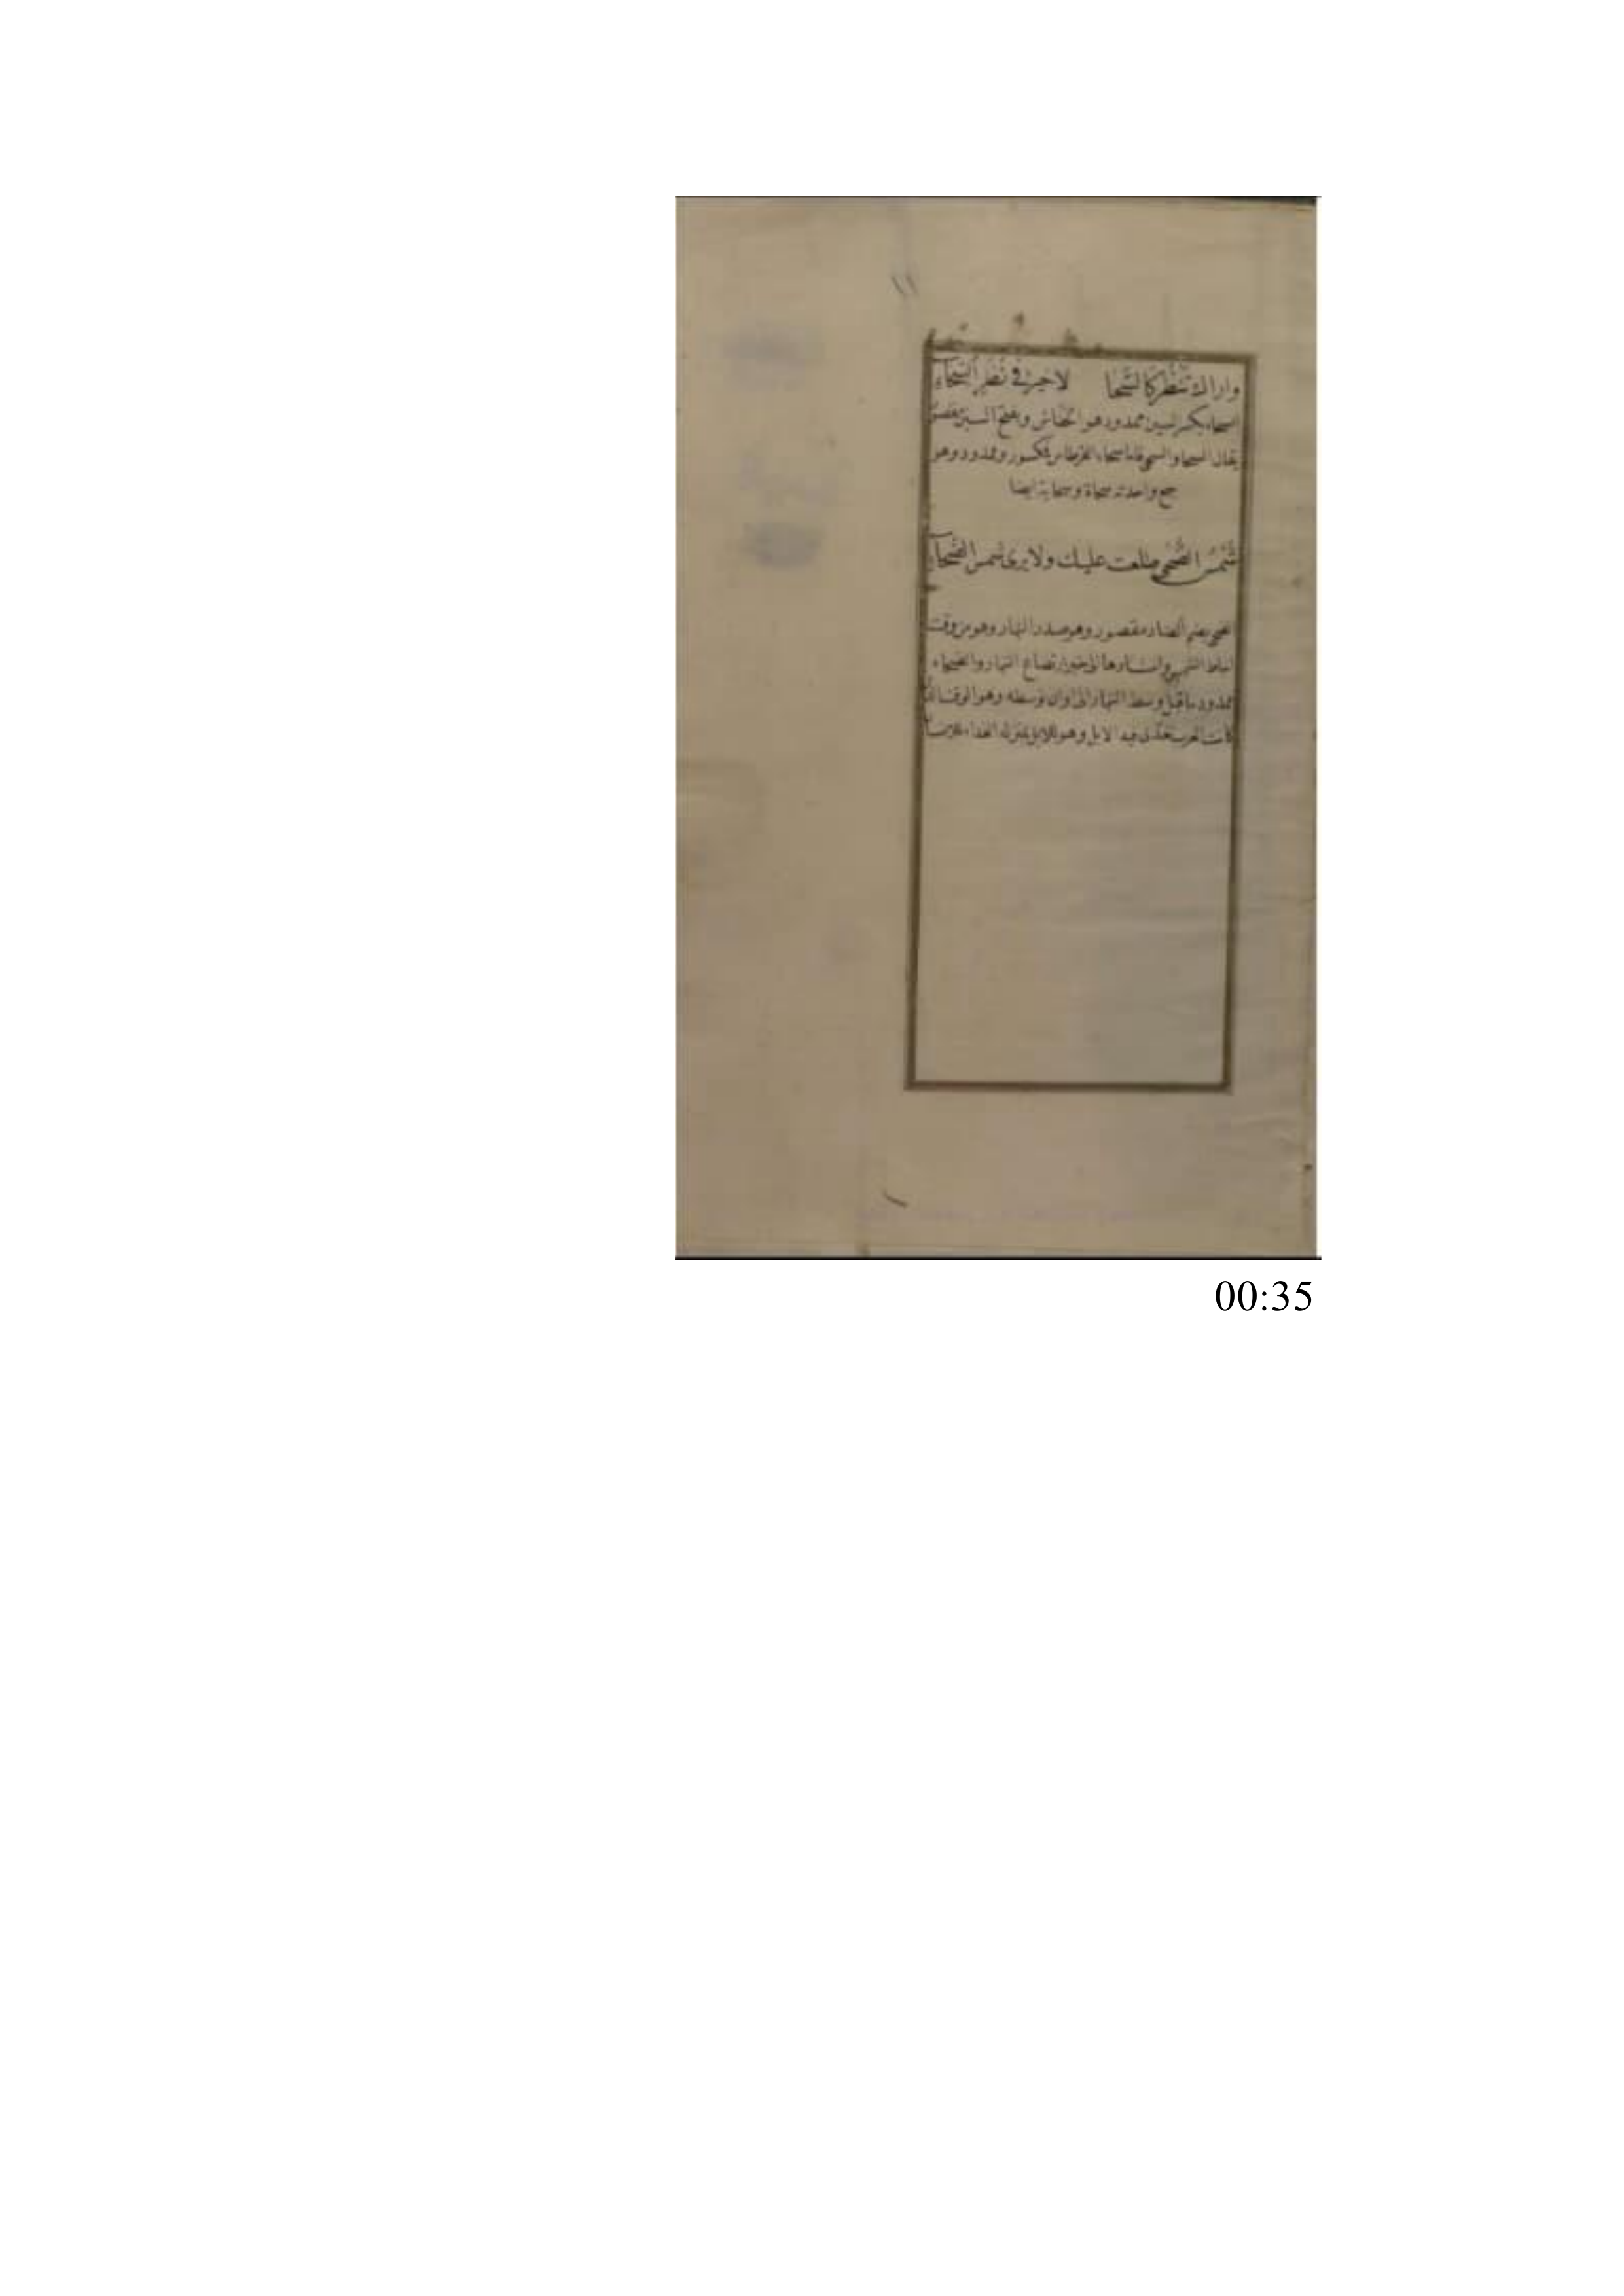 ١١
واراك تَنْظُر كالسَّحَا لا خير في نظر السحاء
السحاء بكسر السين ممدود هو الخفاش وبفتح السين مقصور
يقال السحا والسحى فاما سحاء القرطاس فمكسور وممدود وهو
جمع واحدته سحاة وسحاية ايضا
شَمْسُ الضُّحى طلعت عليك ولا يرى شمس الضحاء
الضحى بضم الضاد مقصور وهو صدر النهار وهو من وقت
انبساط الشمس الى حين ارتفاع النهار والضحاء
ممدود ما قبل وسط النهار الى اوان توسطه وهو الوقت الذي
كانت العرب تغدى فيه الابل وهو للابل بمنزلة الغداء للانسان
00:35